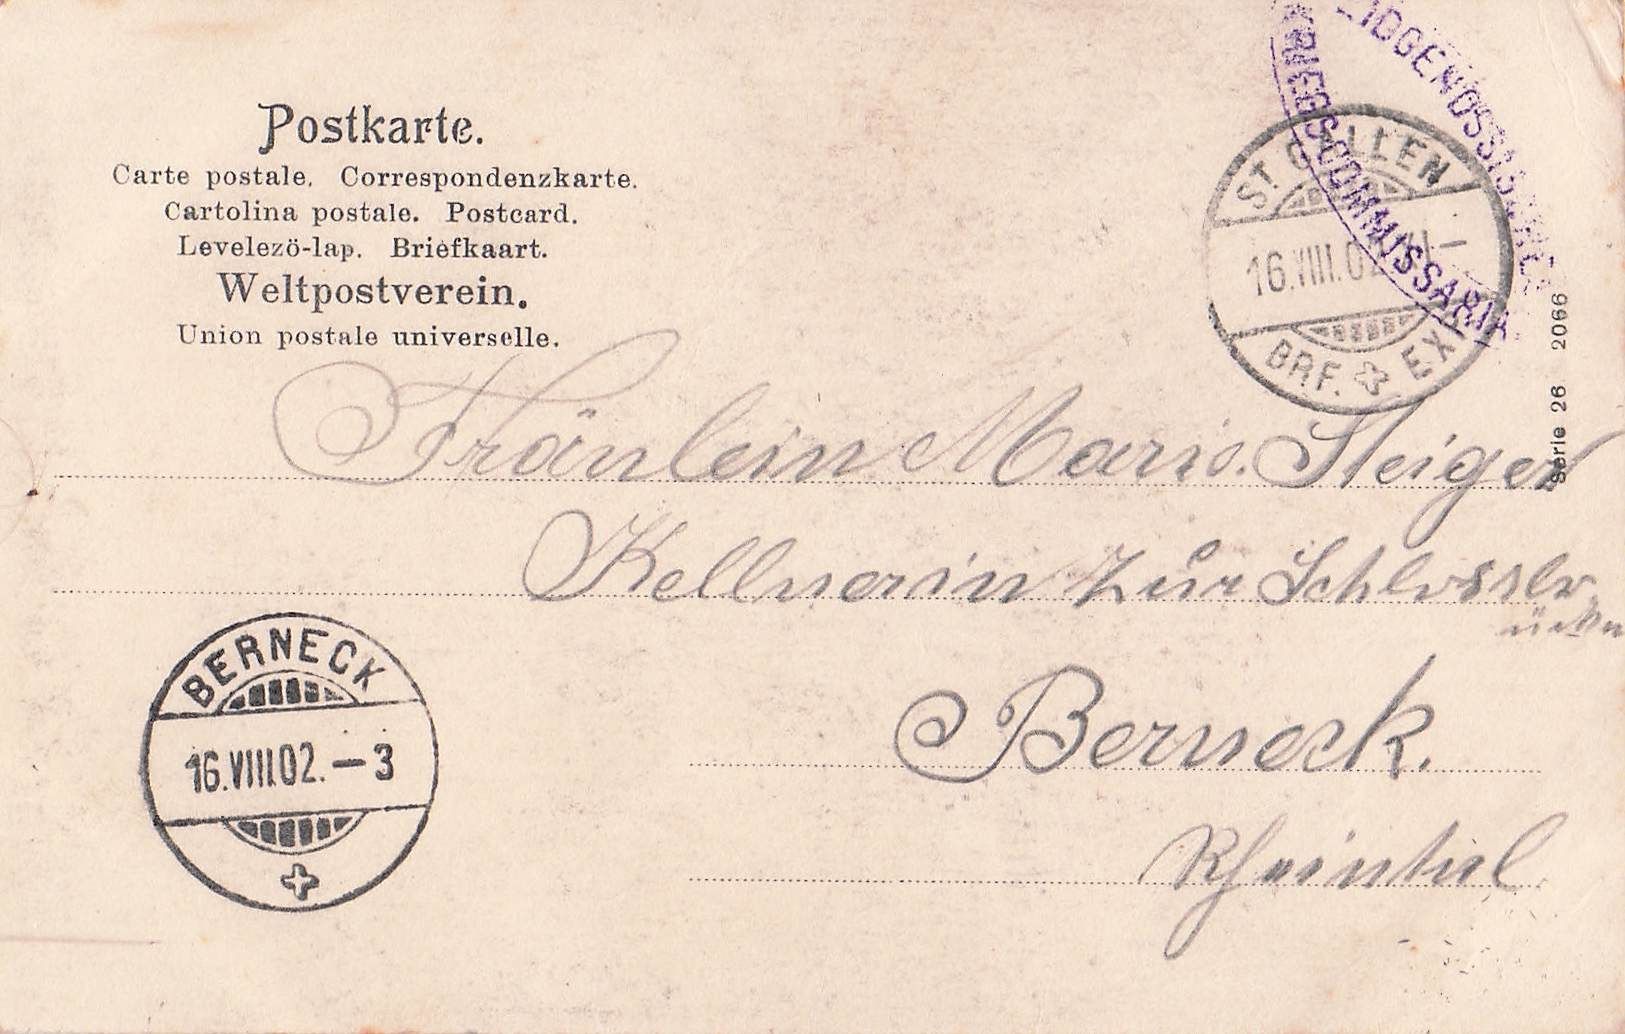 Postkarte.
Carte postale. Correspondenzkarte.
Cartolina postale. Postcard.
Levelezö-lap. Briefkaart.
Weltpostverein.
Union postale universelle.
EIDGENÖSSISCHES
KRIEGSCOMMISSARIA
ST. GALLEN
16.VIII.02. XI–
BRF. EXP
Serie 26 2066
Fräulein Marie Steiger
Kellnerin zur
Berneck.
Rheintal
BERNECK
16.VIII.02.–3